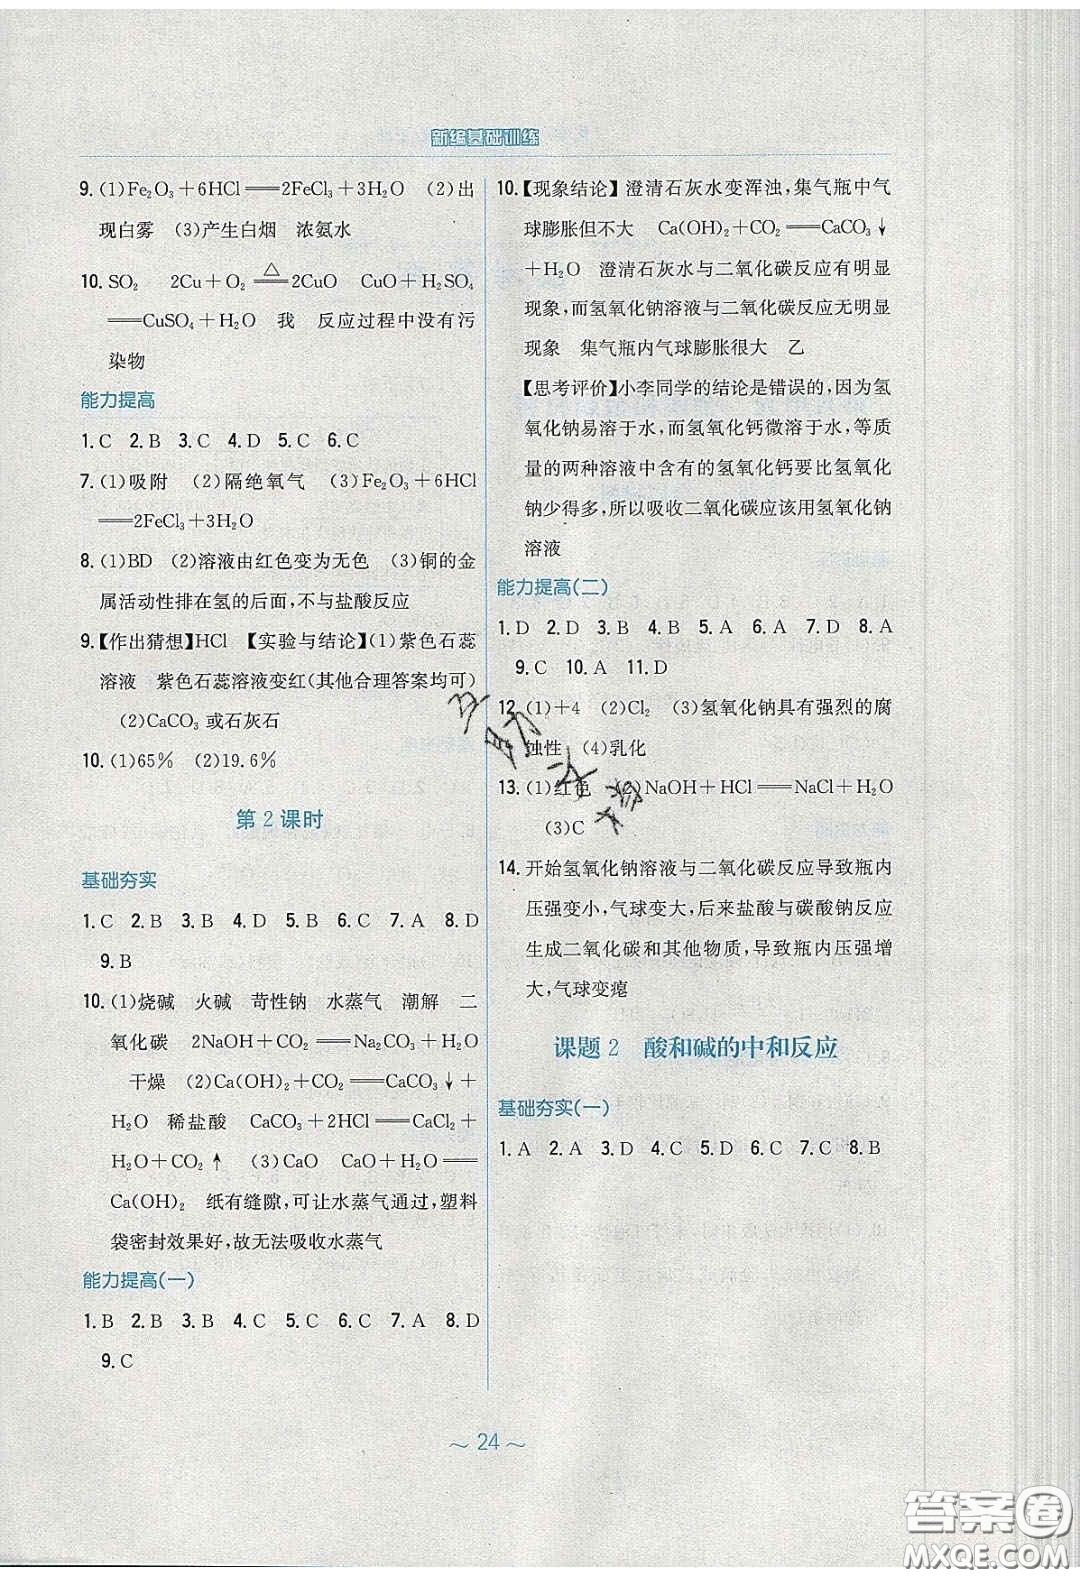 新编基础训练
9. (1)Fe₂O₃+6HCl══2FeCl₃+3H₂O　(2)出
现白雾　(3)产生白烟　浓氨水
10. SO₂　2Cu+O₂ ══△ 2CuO　CuO+H₂SO₄
══CuSO₄+H₂O　我　反应过程中没有污
染物
能力提高
1. C　2. B　3. C　4. D　5. C　6. C
7. (1)吸附　(2)隔绝氧气　(3)Fe₂O₃+6HCl
══2FeCl₃+3H₂O
8. (1)BD　(2)溶液由红色变为无色　(3)铜的金
属活动性排在氢的后面,不与盐酸反应
9.【作出猜想】HCl　【实验与结论】(1)紫色石蕊
溶液　紫色石蕊溶液变红(其他合理答案均可)
(2)CaCO₃ 或石灰石
10. (1)65%　(2)19.6%
第 2 课时
基础夯实
1. C　2. B　3. B　4. D　5. B　6. C　7. A　8. D
9. B
10. (1)烧碱　火碱　苛性钠　水蒸气　潮解　二
氧化碳　2NaOH+CO₂══Na₂CO₃+H₂O
干燥　(2)Ca(OH)₂+CO₂══CaCO₃↓+
H₂O　稀盐酸　CaCO₃+2HCl══CaCl₂+
H₂O+CO₂↑　(3)CaO　CaO+H₂O══
Ca(OH)₂　纸有缝隙,可让水蒸气通过,塑料
袋密封效果好,故无法吸收水蒸气
能力提高(一)
1. B　2. B　3. B　4. C　5. C　6. C　7. A　8. D
9. C
10.【现象结论】澄清石灰水变浑浊,集气瓶中气
球膨胀但不大　Ca(OH)₂+CO₂══CaCO₃↓
+H₂O　澄清石灰水与二氧化碳反应有明显
现象,而氢氧化钠溶液与二氧化碳反应无明显
现象　集气瓶内气球膨胀很大　乙
【思考评价】小李同学的结论是错误的,因为氢
氧化钠易溶于水,而氢氧化钙微溶于水,等质
量的两种溶液中含有的氢氧化钙要比氢氧化
钠少得多,所以吸收二氧化碳应该用氢氧化钠
溶液
能力提高(二)
1. D　2. D　3. B　4. B　5. A　6. A　7. D　8. A
9. C　10. A　11. D
12. (1)+4　(2)Cl₂　(3)氢氧化钠具有强烈的腐
蚀性　(4)乳化
13. (1)红色　(2)NaOH+HCl══NaCl+H₂O
(3)C
14. 开始氢氧化钠溶液与二氧化碳反应导致瓶内
压强变小,气球变大,后来盐酸与碳酸钠反应
生成二氧化碳和其他物质,导致瓶内压强增
大,气球变瘪
课题 2　酸和碱的中和反应
基础夯实(一)
1. A　2. A　3. D　4. C　5. C　6. D　7. C　8. B
～ 24 ～
答案圈
MXQE.COM